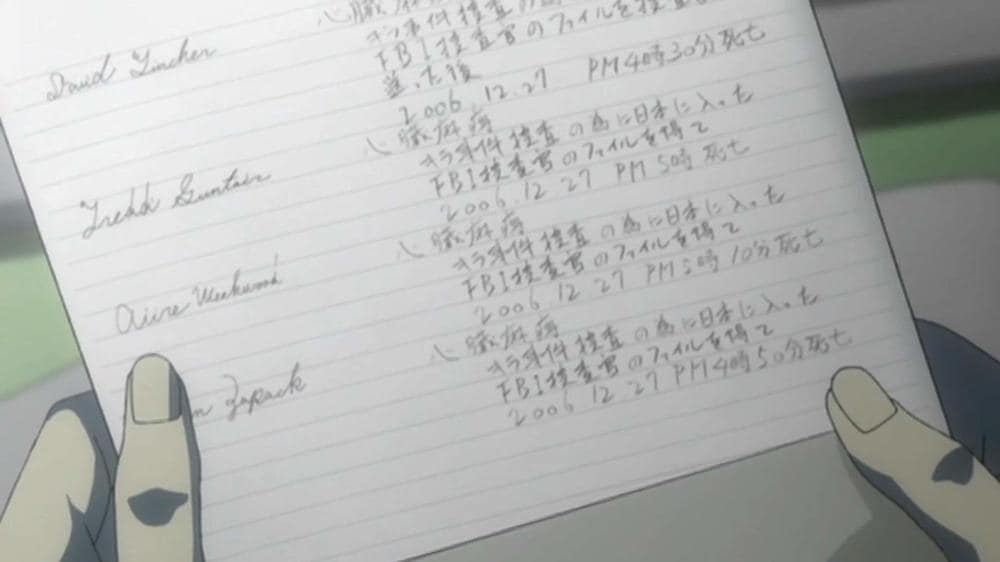 心臓麻痺
キラ事件検査の為
David Lincher
FBI検査官のファイルを検査
送った後
2006. 12. 27 PM 4時30分死亡
心臓麻痺
キラ事件検査の為に日本に入った
Fredd Guntair
FBI検査官のファイルを得て
2006. 12. 27 PM 5時 死亡
心臓麻痺
キラ事件検査の為に日本に入った
FBI検査官のファイルを得て
Weekwood
2006 12 27 PM 5時10分死亡
心臓麻痺
キラ事件検査の為に日本に入った
FBI検査官のファイルを得て
n Lapack
2006 12 27 PM 4時50分死亡